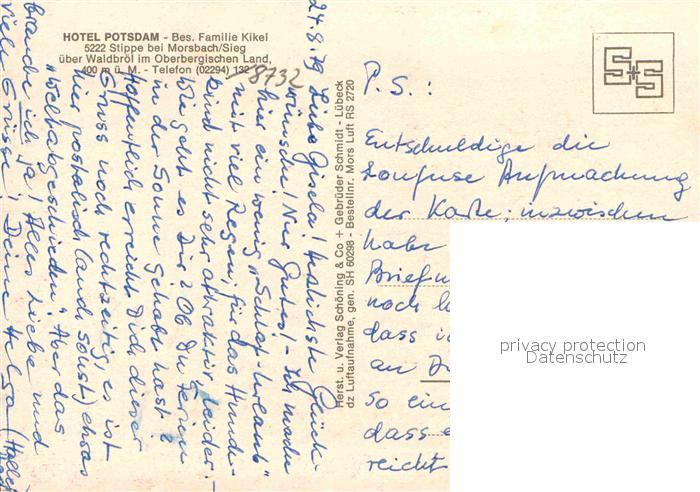 HOTEL POTSDAM - Bes. Familie Kikel
5222 Stippe bei Morsbach/Sieg
über Waldbröl im Oberbergischen Land,
400 m ü. M. - Telefon (02294) 132
8732
24.8.79
Liebe Gisela! Herzlichste Glück-
wünsche! Nur Gutes! - Ich mache
hier ein wenig "Schlaf-Urlaub"
mit viel Regen, für das Hunde-
kind nicht sehr attraktiv, leider. -
Wie geht es Dir? Ob Du Ferien
in der Sonne gehabt hast?
Hoffentlich erreicht Dich dieser
Gruss noch rechtzeitig, es ist
hier postalisch (land. sonst) etwas
"weltabgeschieden". Aber das
brauche ich ja! Alles Liebe und
viele Grüsse, Deine Helga
Herst. u. Verlag Schöning & Co + Gebrüder Schmidt - Lübeck
dz Luftaufnahme, gen. SH 60298 - Bestellnr. Mors Luft RS 2720
S+S
P.S.:
Entschuldige die
konfuse Aufmachung
der Karte; inzwischen
habe
noch
dass
an
so ein
dass
reicht
privacy protection
Datenschutz